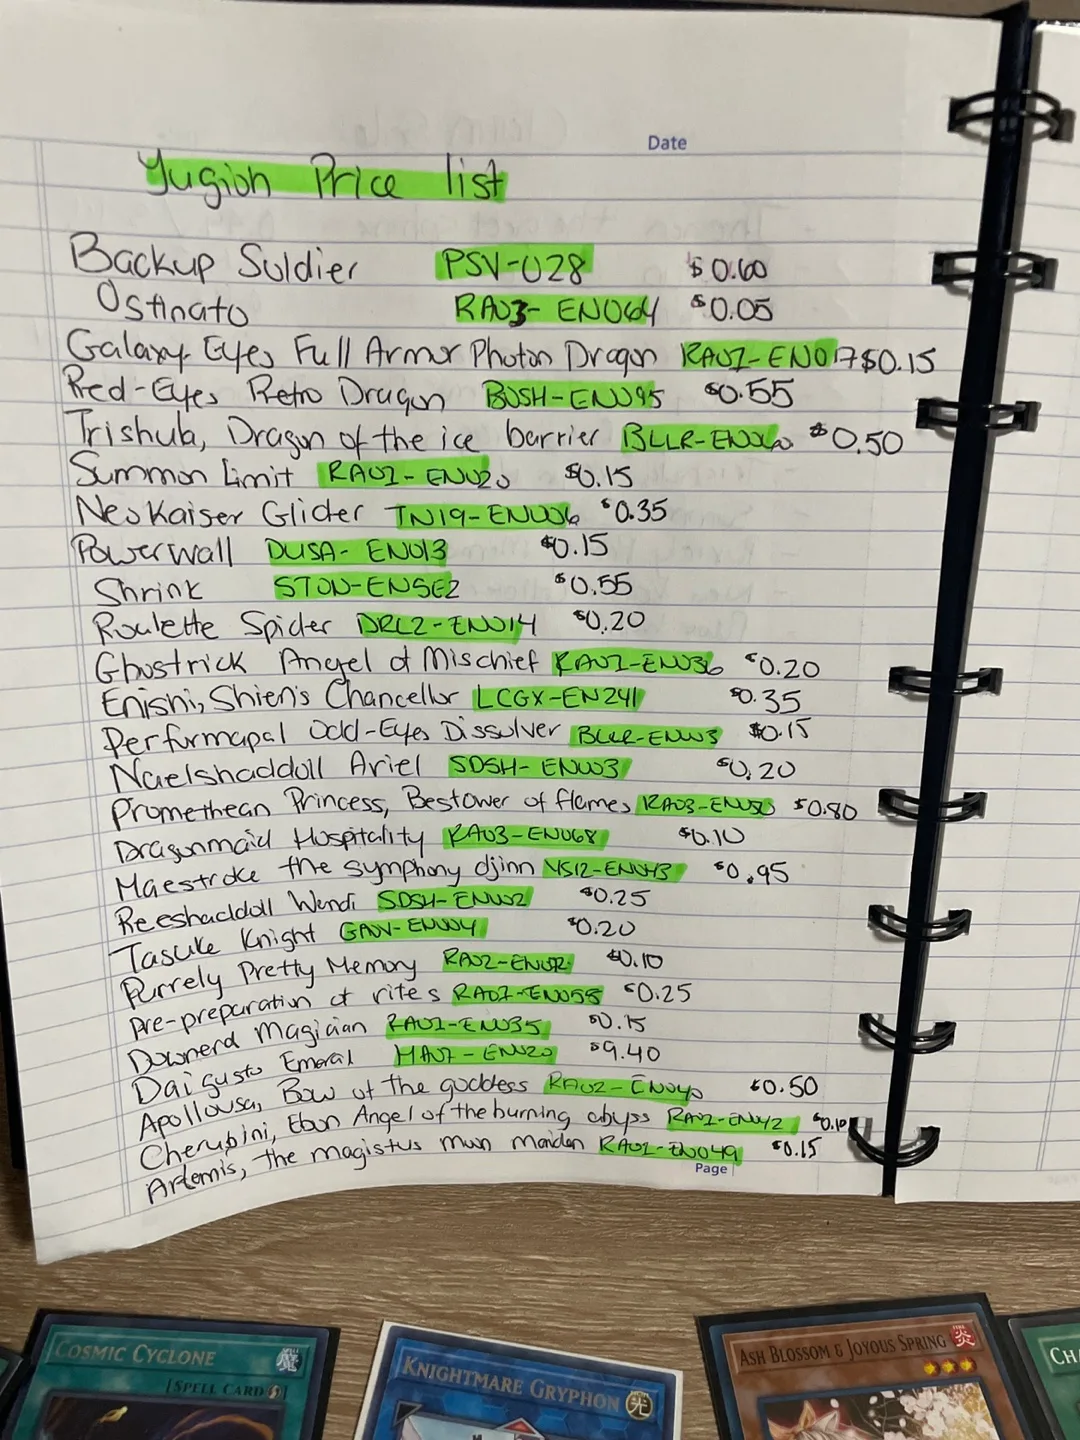 Date
Yugioh Price list
Backup Soldier PSV-028 $0.60
Ostinato RA03-EN064 $0.05
Galaxy Eyes Full Armor Photon Dragon RA01-EN017 $0.15
Red-Eyes Retro Dragon BOSH-EN095 $0.55
Trishula, Dragon of the ice barrier BLLR-EN060 $0.50
Summon Limit RA01-EN020 $0.15
Neo Kaiser Glider TN19-EN006 $0.35
Powerwall DUSA-EN013 $0.15
Shrink STON-ENSE2 $0.55
Roulette Spider DRL2-EN014 $0.20
Ghostrick Angel of Mischief RA01-EN036 $0.20
Enishi, Shien's Chancellor LCGX-EN241 $0.35
Performapal Odd-Eyes Dissolver BLLR-EN003 $0.15
Naelshaddoll Ariel SDSH-EN003 $0.20
Promethean Princess, Bestower of flames RA03-EN050 $0.80
Dragonmaid Hospitality RA03-EN068 $0.10
Maestroke the symphony djinn YS12-EN043 $0.95
Reeshaddoll Wendi SDSH-EN002 $0.25
Tasuke Knight GAOV-EN004 $0.20
Purrely Pretty Memory $0.10
pre-preparation of rites RA01-EN058 $0.25
Downerd Magician RA01-EN035 $0.15
Daigusto Emeral HA07-EN020 $9.40
Apollousa, Bow of the goddess RA02-EN040 $0.50
Cherubini, Ebon Angel of the burning abyss RA01-EN042 $0.10
Artemis, the magistus mun maiden RA01-EN049 $0.15
Page
COSMIC CYCLONE
[SPELL CARD]
KNIGHTMARE GRYPHON
光
ASH BLOSSOM & JOYOUS SPRING
炎
CHA